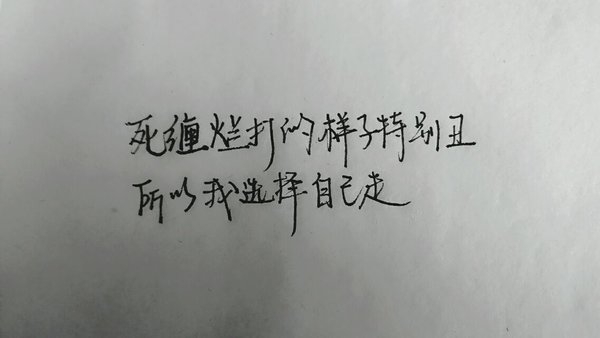 死缠烂打的样子特别丑
所以我选择自己走